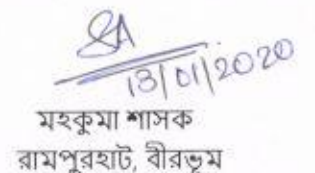 13/01/2020
মহকুমা শাসক
রামপুরহাট, বীরভূম